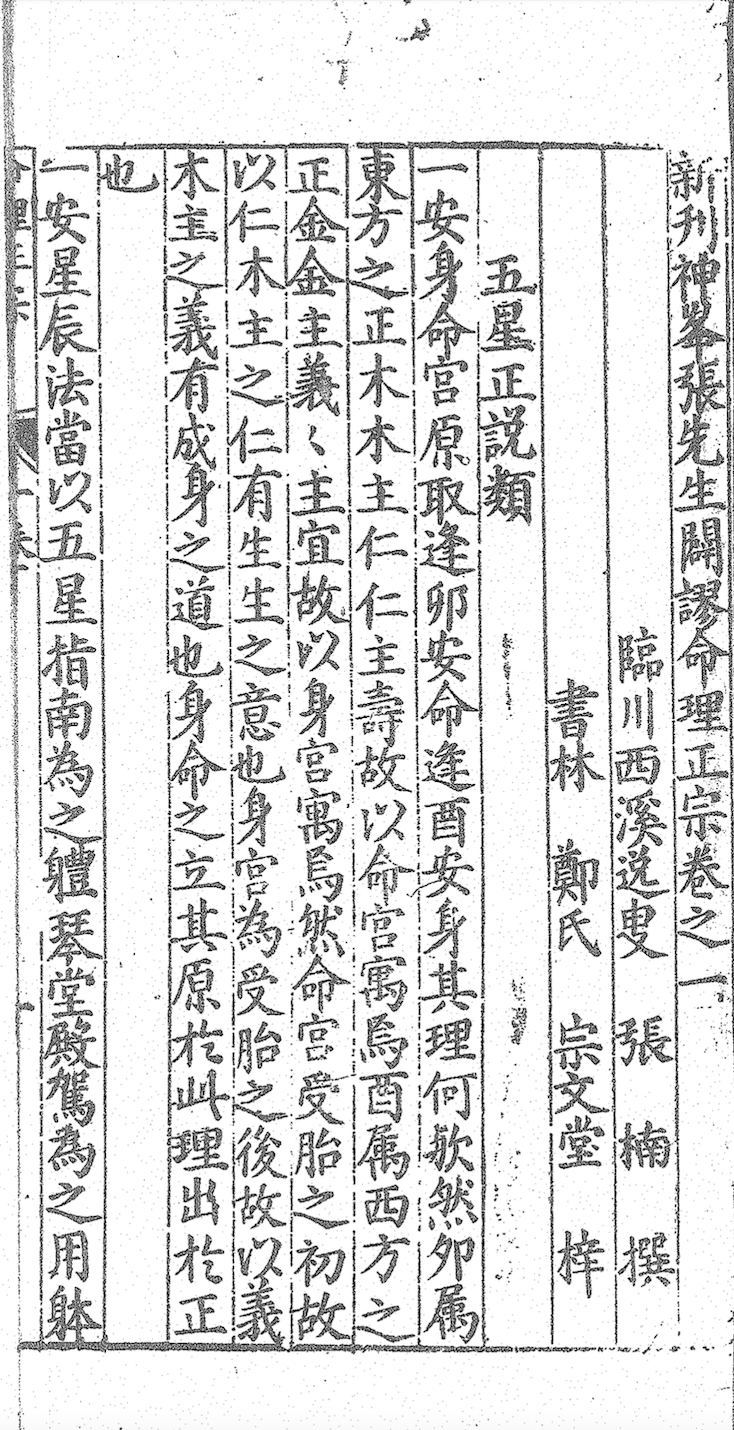 新刋神峯張先生闢謬命理正宗卷之一
臨川西溪逸叟 張 楠 撰
書林 鄭氏 宗文堂 梓
五星正說類
一安身命宮原取逢卯安命逢酉安身其理何欤然卯属
東方之正木木主仁仁主壽故以命宮寓焉酉属西方之
正金金主義〻主宜故以身宮寓焉然命宮受胎之初故
以仁木主之仁有生生之意也身宮為受胎之後故以義
木主之義有成身之道也身命之立其原於此理出於正
也
一安星辰法當以五星指南為之軆琴堂殿駕為之用躰
命理正宗 一卷